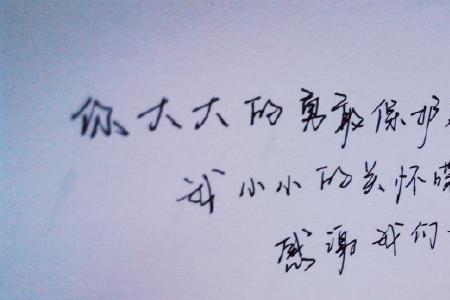 你大大的勇敢保护
我小小的关怀喋
感谢我们